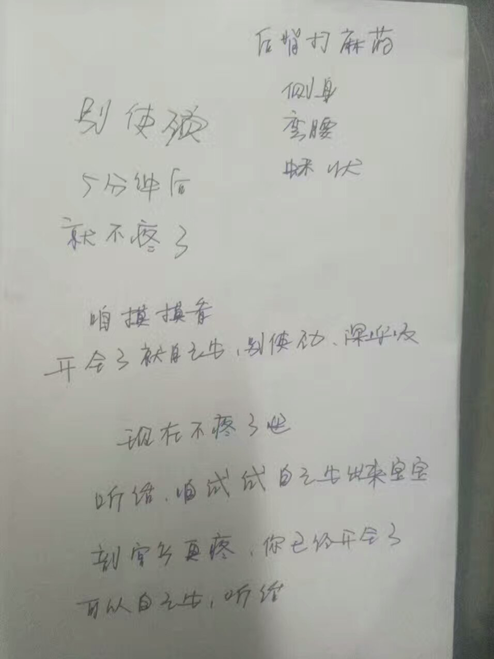 后背打麻药
侧身
弯腰
虾状
别使劲
5分钟后
就不疼了
咱摸摸看
开全了就自己生,别使劲、深呼吸
现在不疼了吧
听话,咱试试自己生出来宝宝
剖宫产更疼,你已经开全了
可以自己生,听话